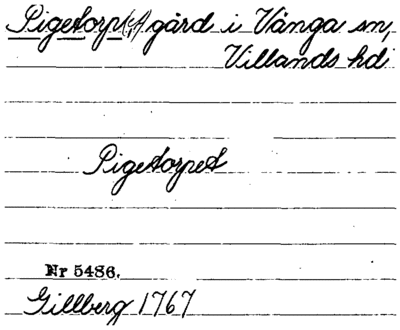 Pigetorp(,) gård i Vånga sn,
Villands hd
Pigetorpet
Nr 5486.
Gillberg 1767